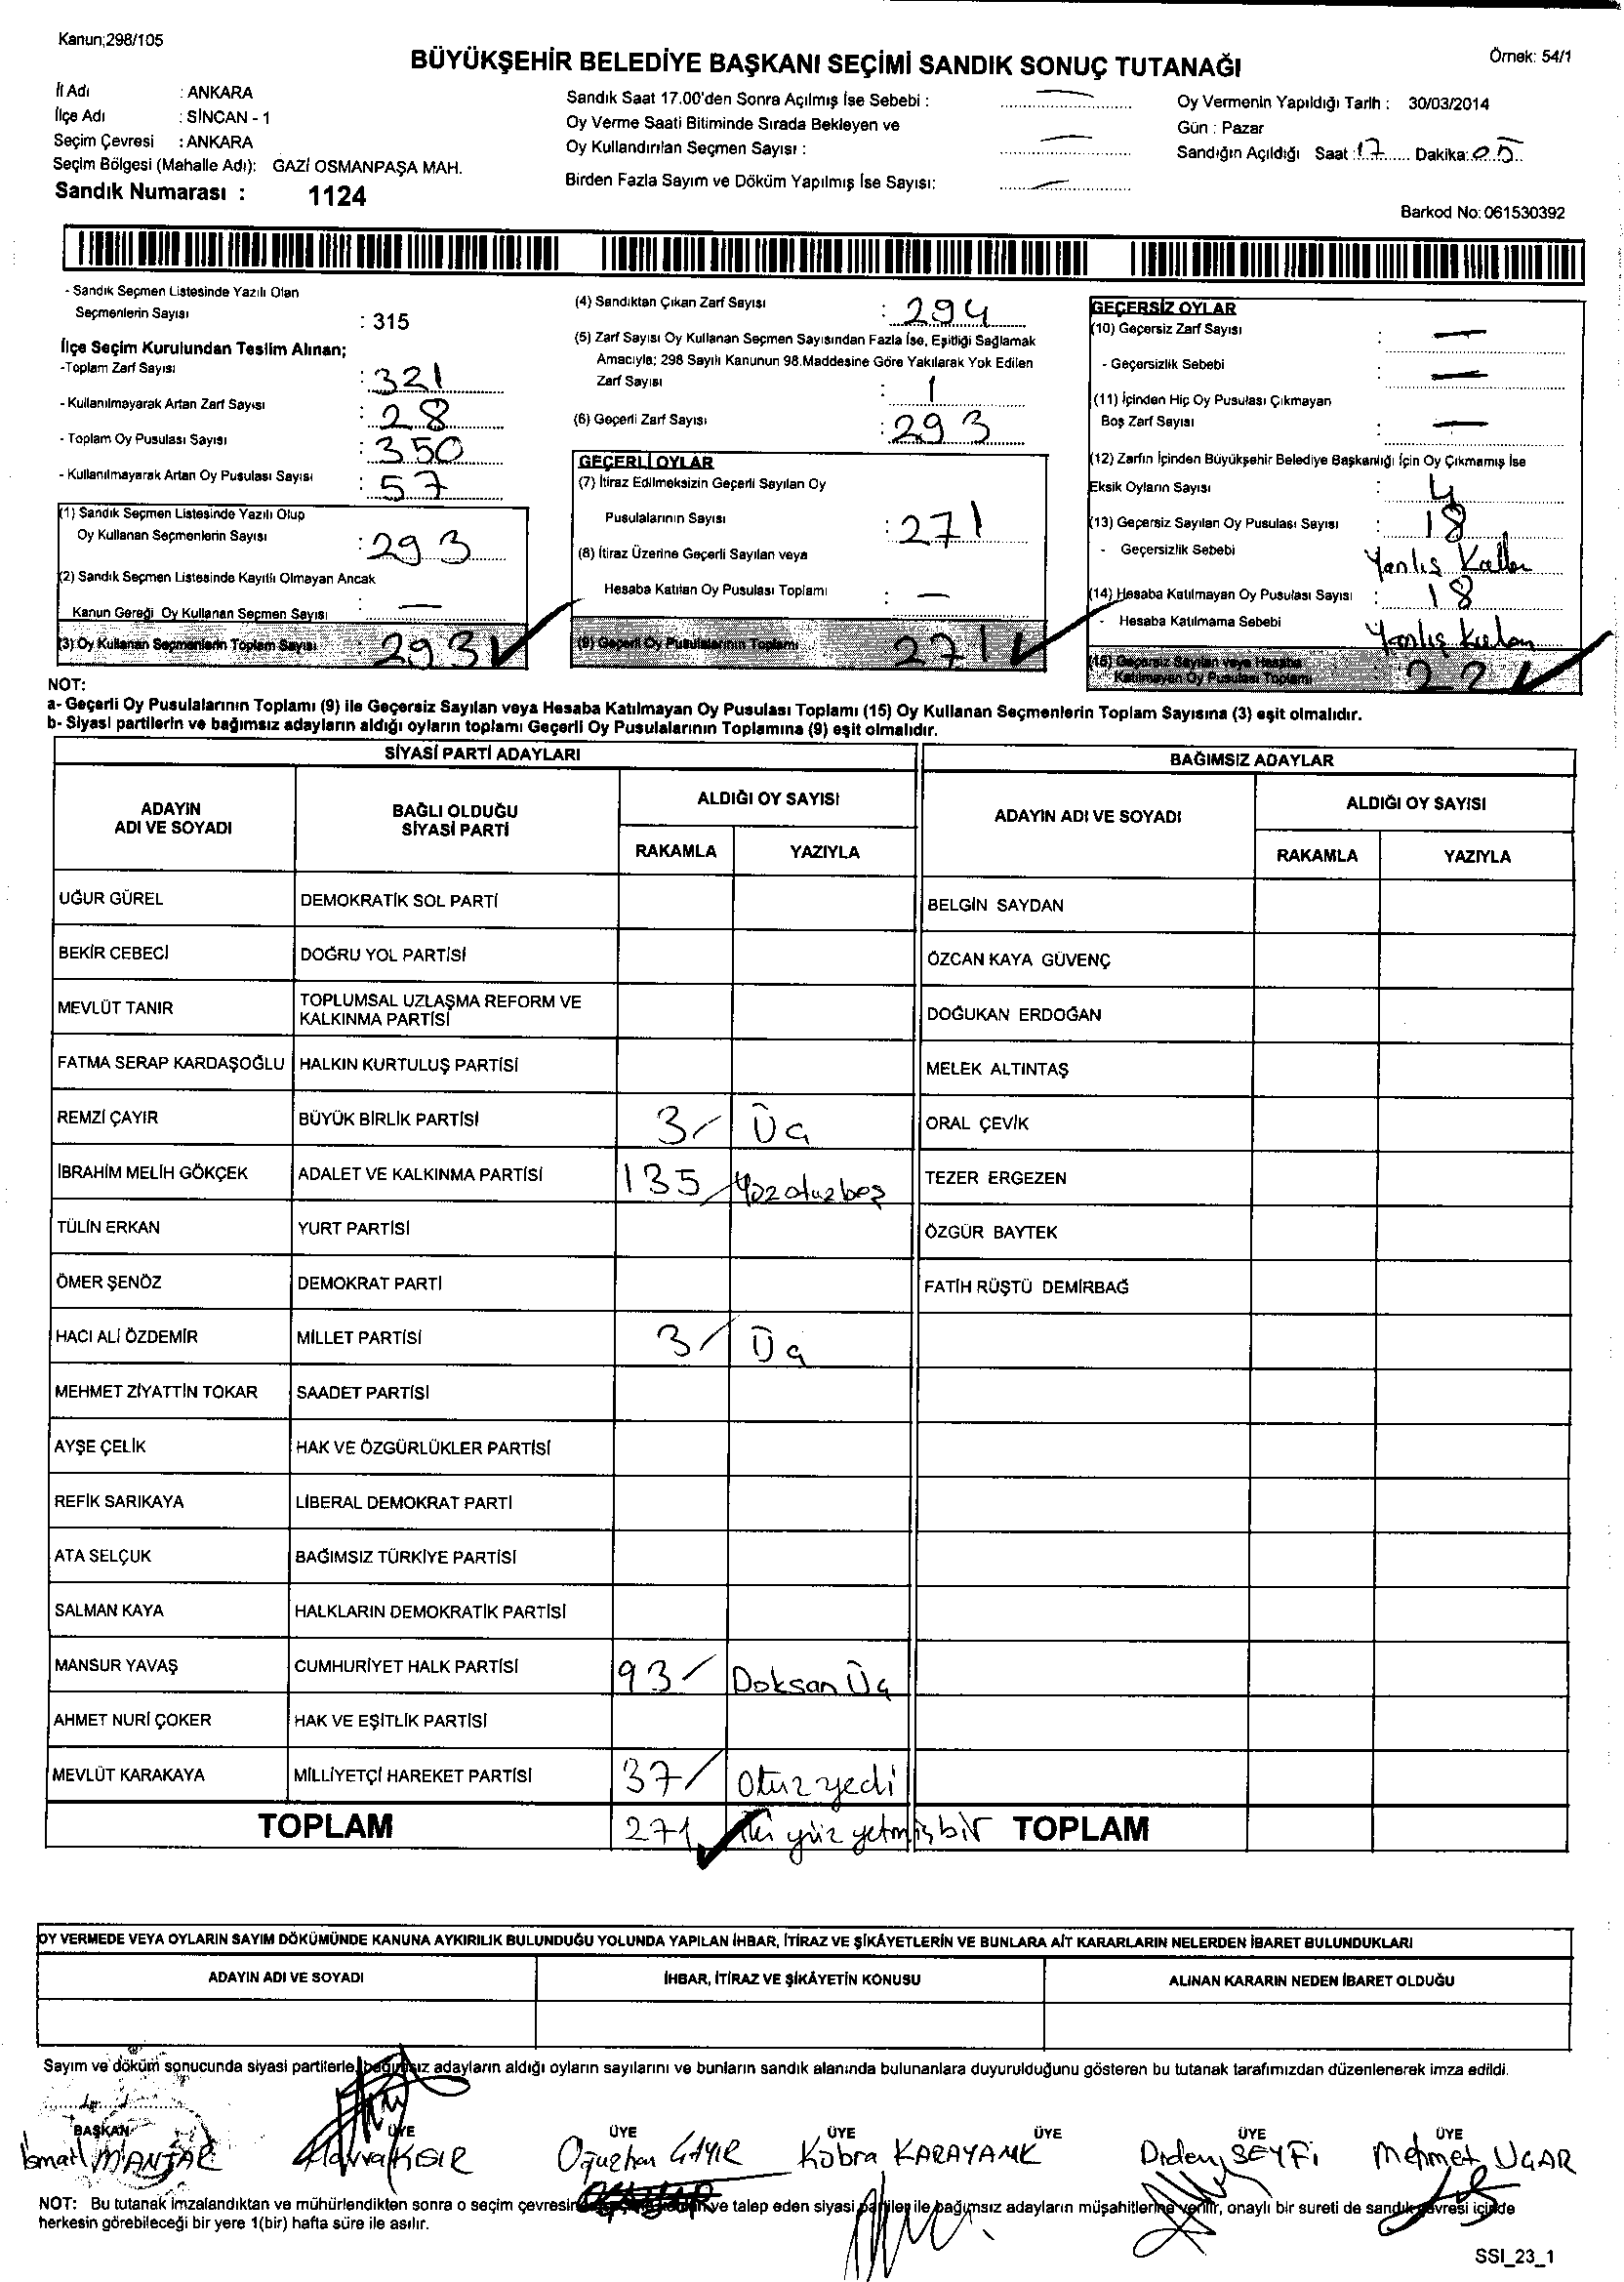 Kanun;298/105
BÜYÜKŞEHİR BELEDİYE BAŞKANI SEÇİMİ SANDIK SONUÇ TUTANAĞI
Örnek: 54/1
İl Adı : ANKARA
İlçe Adı : SİNCAN - 1
Seçim Çevresi : ANKARA
Seçim Bölgesi (Mahalle Adı): GAZİ OSMANPAŞA MAH.
Sandık Numarası : 1124
Sandık Saat 17.00'den Sonra Açılmış İse Sebebi : —
Oy Verme Saati Bitiminde Sırada Bekleyen ve
Oy Kullandırılan Seçmen Sayısı : —
Birden Fazla Sayım ve Döküm Yapılmış İse Sayısı: —
Oy Vermenin Yapıldığı Tarih : 30/03/2014
Gün : Pazar
Sandığın Açıldığı Saat : 17 Dakika: 05
Barkod No: 061530392
- Sandık Seçmen Listesinde Yazılı Olan
Seçmenlerin Sayısı : 315
İlçe Seçim Kurulundan Teslim Alınan;
-Toplam Zarf Sayısı : 321
- Kullanılmayarak Artan Zarf Sayısı : 28
- Toplam Oy Pusulası Sayısı : 350
- Kullanılmayarak Artan Oy Pusulası Sayısı : 57
(1) Sandık Seçmen Listesinde Yazılı Olup
Oy Kullanan Seçmenlerin Sayısı : 293
(2) Sandık Seçmen Listesinde Kayıtlı Olmayan Ancak
Kanun Gereği Oy Kullanan Seçmen Sayısı : —
(3) Oy Kullanan Seçmenlerin Toplam Sayısı : 293
(4) Sandıktan Çıkan Zarf Sayısı : 294
(5) Zarf Sayısı Oy Kullanan Seçmen Sayısından Fazla İse, Eşitliği Sağlamak
Amacıyla; 298 Sayılı Kanunun 98.Maddesine Göre Yakılarak Yok Edilen
Zarf Sayısı : 1
(6) Geçerli Zarf Sayısı : 293
GEÇERLİ OYLAR
(7) İtiraz Edilmeksizin Geçerli Sayılan Oy
Pusulalarının Sayısı : 271
(8) İtiraz Üzerine Geçerli Sayılan veya
Hesaba Katılan Oy Pusulası Toplamı : —
(9) Geçerli Oy Pusulalarının Toplamı 271
GEÇERSİZ OYLAR
(10) Geçersiz Zarf Sayısı : —
- Geçersizlik Sebebi : —
(11) İçinden Hiç Oy Pusulası Çıkmayan
Boş Zarf Sayısı : —
(12) Zarfın İçinden Büyükşehir Belediye Başkanlığı İçin Oy Çıkmamış İse
Eksik Oyların Sayısı : 4
(13) Geçersiz Sayılan Oy Pusulası Sayısı : 18
- Geçersizlik Sebebi Yanlış
(14) Hesaba Katılmayan Oy Pusulası Sayısı : 18
- Hesaba Katılmama Sebebi Yanlış
(15) Geçersiz Sayılan veya Hesaba
Katılmayan Oy Pusulası Toplamı : 22
NOT:
a- Geçerli Oy Pusulalarının Toplamı (9) ile Geçersiz Sayılan veya Hesaba Katılmayan Oy Pusulası Toplamı (15) Oy Kullanan Seçmenlerin Toplam Sayısına (3) eşit olmalıdır.
b- Siyasi partilerin ve bağımsız adayların aldığı oyların toplamı Geçerli Oy Pusulalarının Toplamına (9) eşit olmalıdır.
SİYASİ PARTİ ADAYLARI BAĞIMSIZ ADAYLAR
ADAYIN ADI VE SOYADI BAĞLI OLDUĞU SİYASİ PARTİ ALDIĞI OY SAYISI ADAYIN ADI VE SOYADI ALDIĞI OY SAYISI
RAKAMLA YAZIYLA RAKAMLA YAZIYLA
UĞUR GÜREL DEMOKRATİK SOL PARTİ BELGİN SAYDAN
BEKİR CEBECİ DOĞRU YOL PARTİSİ ÖZCAN KAYA GÜVENÇ
MEVLÜT TANIR TOPLUMSAL UZLAŞMA REFORM VE KALKINMA PARTİSİ DOĞUKAN ERDOĞAN
FATMA SERAP KARDAŞOĞLU HALKIN KURTULUŞ PARTİSİ MELEK ALTINTAŞ
REMZİ ÇAYIR BÜYÜK BİRLİK PARTİSİ 3/ Üç ORAL ÇEVİK
İBRAHİM MELİH GÖKÇEK ADALET VE KALKINMA PARTİSİ 135/ Yüzotuzbeş TEZER ERGEZEN
TÜLİN ERKAN YURT PARTİSİ ÖZGÜR BAYTEK
ÖMER ŞENÖZ DEMOKRAT PARTİ FATİH RÜŞTÜ DEMİRBAĞ
HACI ALİ ÖZDEMİR MİLLET PARTİSİ 3/ Üç
MEHMET ZİYATTİN TOKAR SAADET PARTİSİ
AYŞE ÇELİK HAK VE ÖZGÜRLÜKLER PARTİSİ
REFİK SARIKAYA LİBERAL DEMOKRAT PARTİ
ATA SELÇUK BAĞIMSIZ TÜRKİYE PARTİSİ
SALMAN KAYA HALKLARIN DEMOKRATİK PARTİSİ
MANSUR YAVAŞ CUMHURİYET HALK PARTİSİ 93/ Doksan Üç
AHMET NURİ ÇOKER HAK VE EŞİTLİK PARTİSİ
MEVLÜT KARAKAYA MİLLİYETÇİ HAREKET PARTİSİ 37/ Otuz yedi
TOPLAM 271 İki yüz yetmiş bir TOPLAM
OY VERMEDE VEYA OYLARIN SAYIM DÖKÜMÜNDE KANUNA AYKIRILIK BULUNDUĞU YOLUNDA YAPILAN İHBAR, İTİRAZ VE ŞİKÂYETLERİN VE BUNLARA AİT KARARLARIN NELERDEN İBARET BULUNDUKLARI
ADAYIN ADI VE SOYADI İHBAR, İTİRAZ VE ŞİKÂYETİN KONUSU ALINAN KARARIN NEDEN İBARET OLDUĞU
Sayım ve döküm sonucunda siyasi partilerle, bağımsız adayların aldığı oyların sayılarını ve bunların sandık alanında bulunanlara duyurulduğunu gösteren bu tutanak tarafımızdan düzenlenerek imza edildi.
BAŞKAN ÜYE ÜYE ÜYE ÜYE ÜYE ÜYE
İsmail MANTAR Havva KISIR Oğuzhan ÇAYIR Kübra KARAYANIK Didem SEYFİ Mehmet UÇAR
NOT: Bu tutanak imzalandıktan ve mühürlendikten sonra o seçim çevresinde ve talep eden siyasi partiler ile bağımsız adayların müşahitlerine verilir, onaylı bir sureti de sandık çevresi içinde
herkesin görebileceği bir yere 1(bir) hafta süre ile asılır.
SSI_23_1